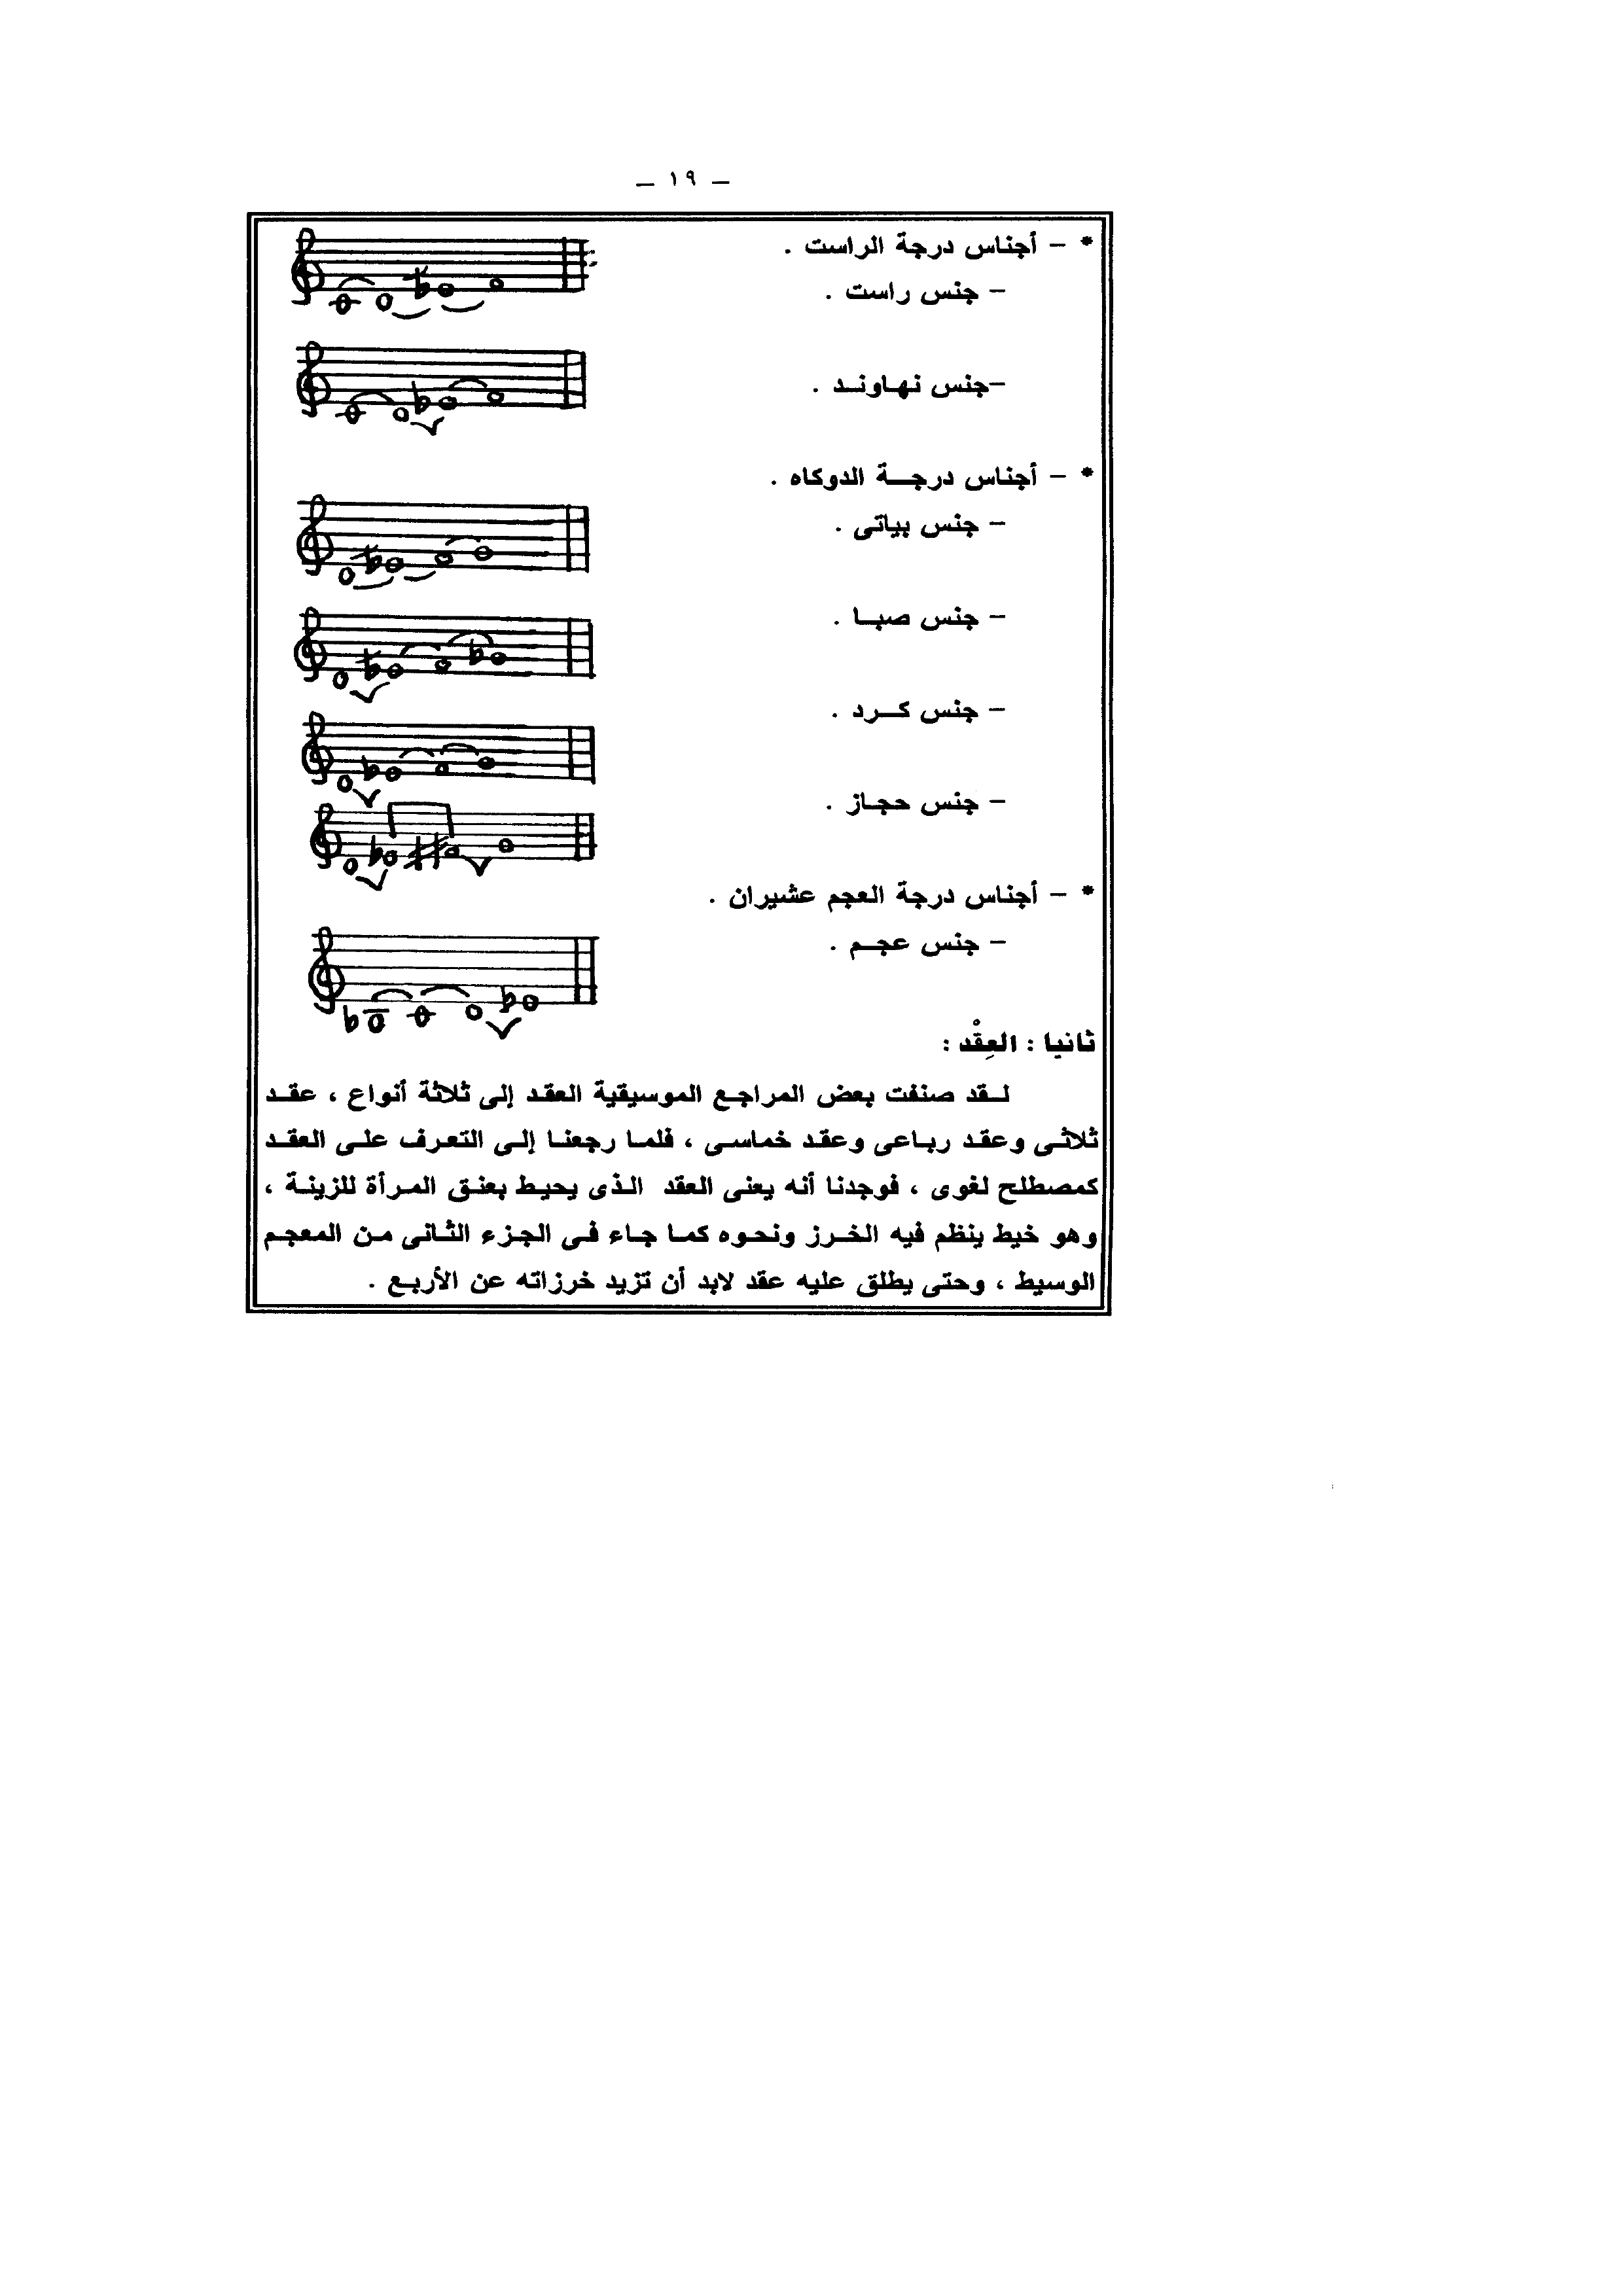 – ١٩ –
* – أجناس درجة الراست .
– جنس راست .
–جنس نهاوند .
* – أجناس درجة الدوكاه .
– جنس بياتى .
– جنس صبا .
– جنس كرد .
– جنس حجاز .
* – أجناس درجة العجم عشيران .
– جنس عجم .
ثانيا : العِقْد :
لقد صنفت بعض المراجع الموسيقية العقد إلى ثلاثة أنواع ، عقد
ثلاثى وعقد رباعى وعقد خماسى ، فلما رجعنا إلى التعرف على العقد
كمصطلح لغوى ، فوجدنا أنه يعنى العقد الذى يحيط بعنق المرأة للزينة ،
وهو خيط ينظم فيه الخرز ونحوه كما جاء فى الجزء الثانى من المعجم
الوسيط ، وحتى يطلق عليه عقد لابد أن تزيد خرزاته عن الأربع .